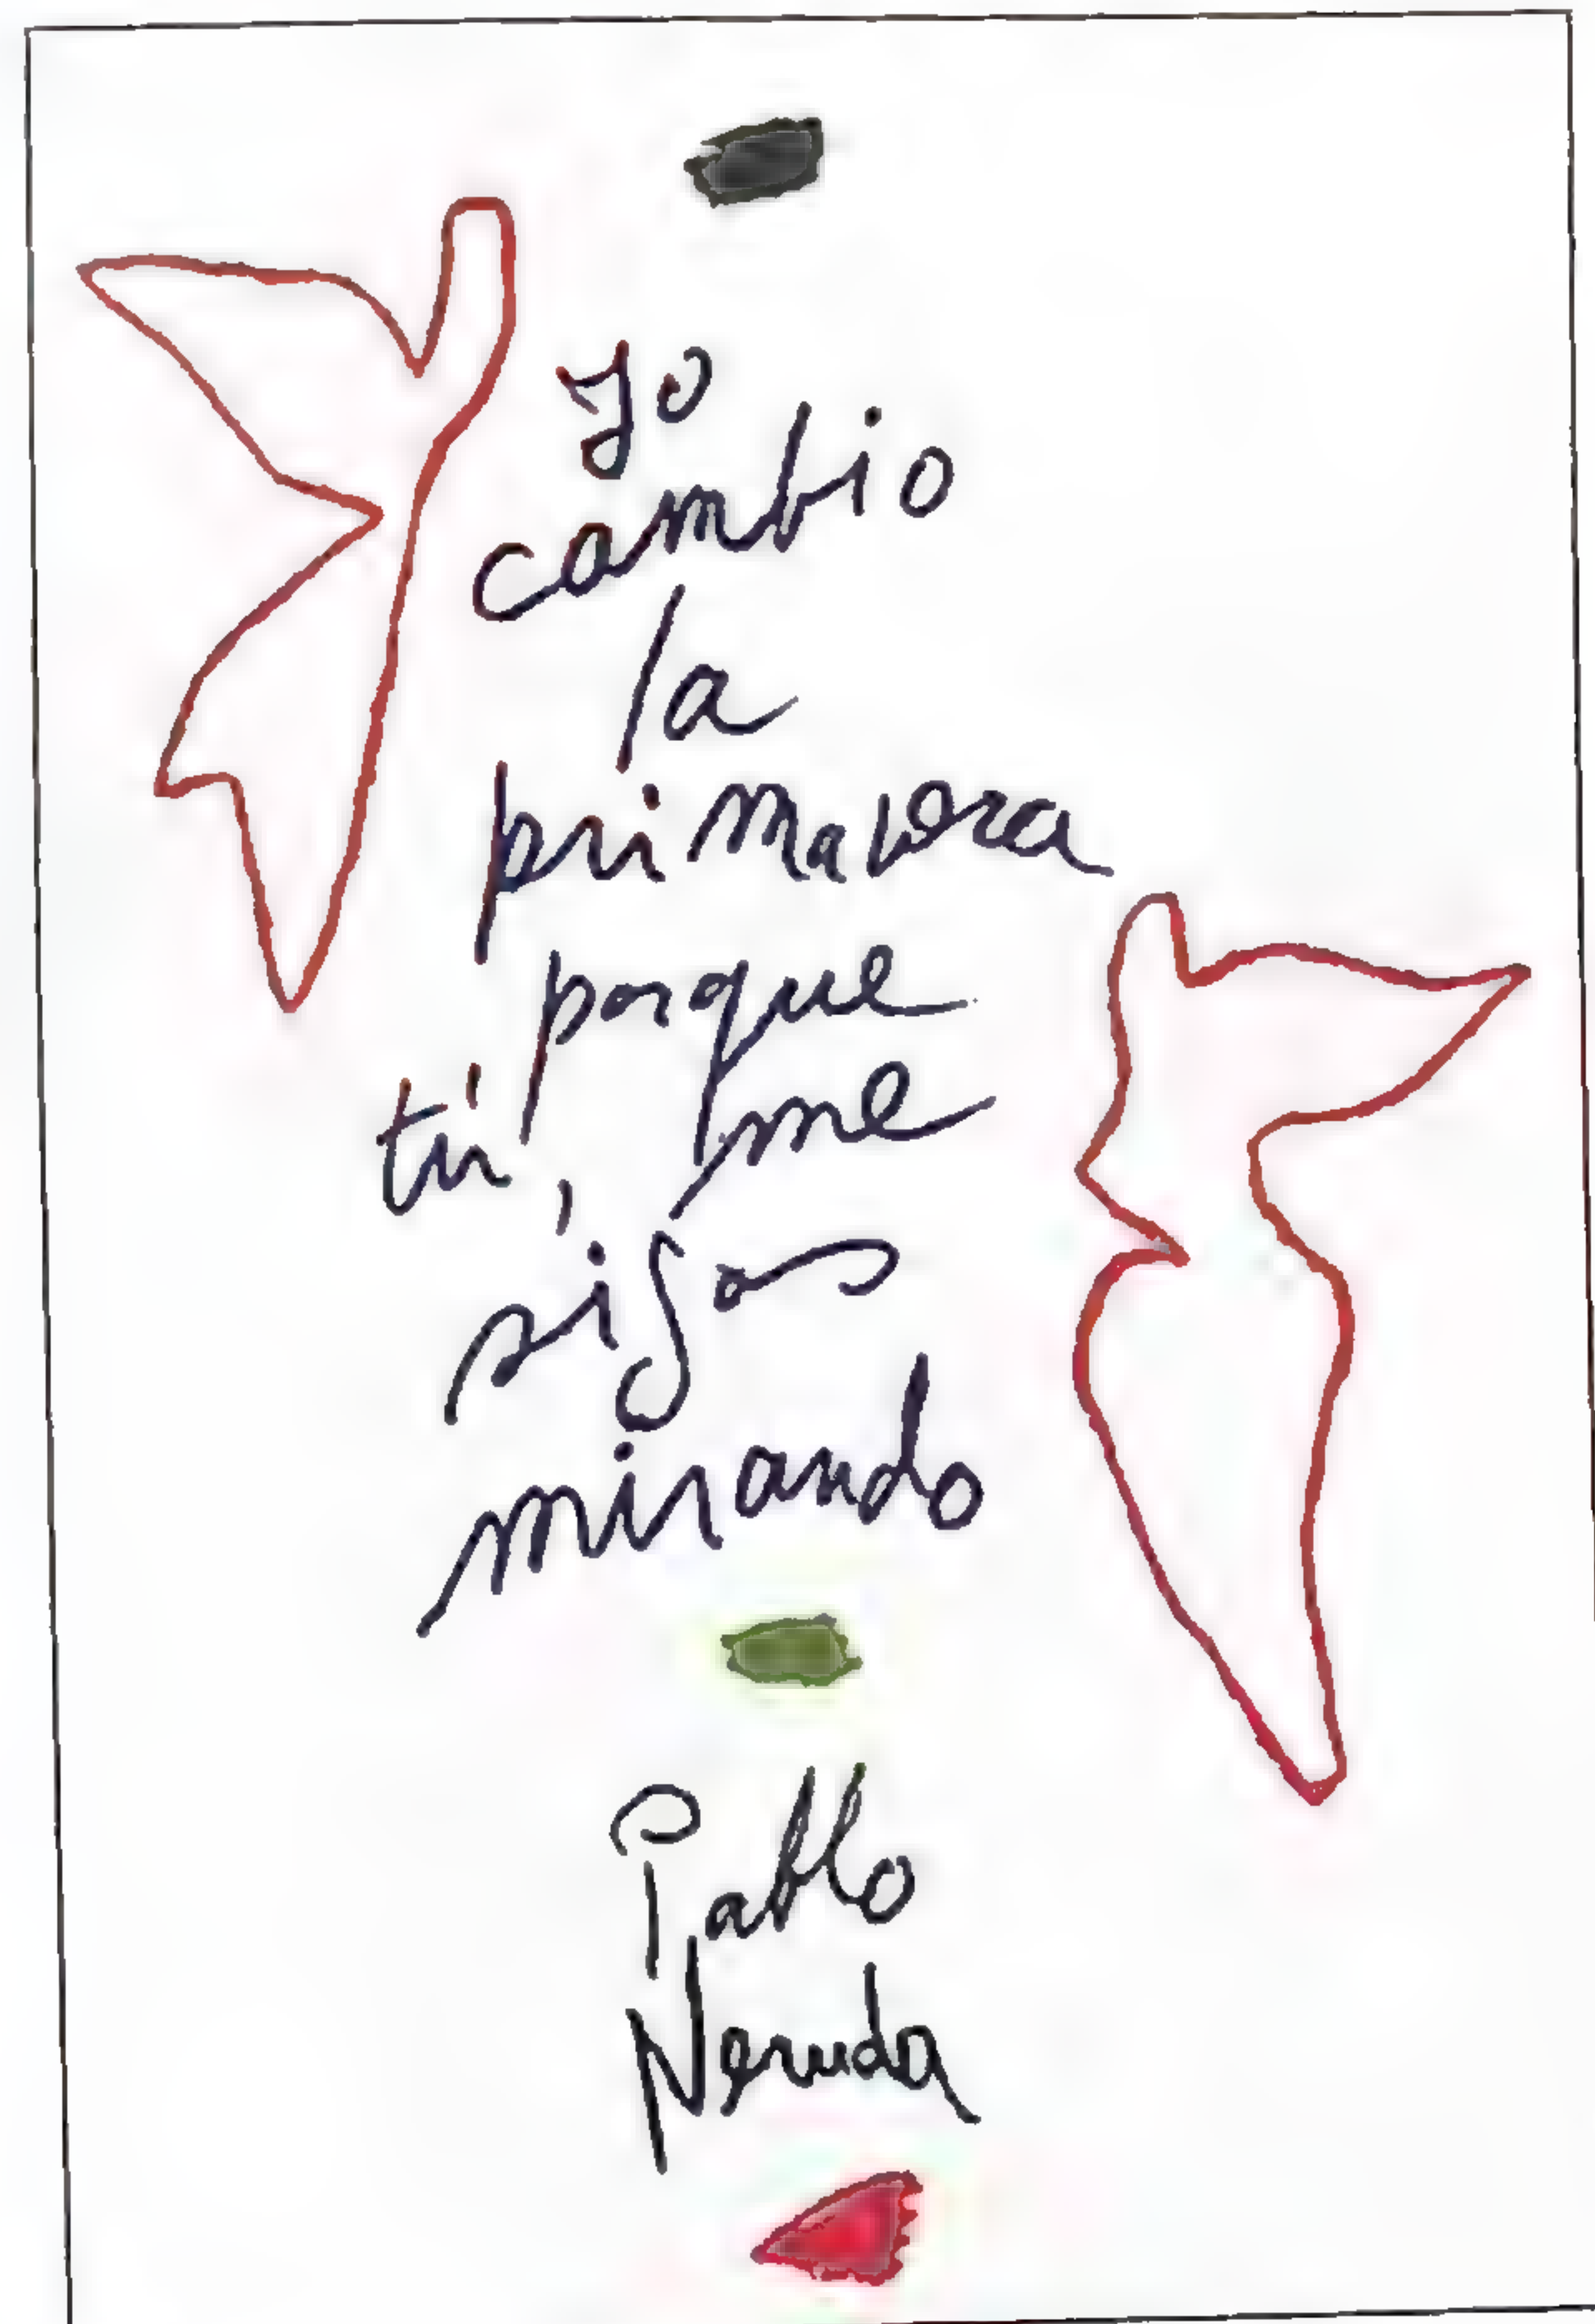 yo
cambio
la
primavera
porque
tú me
sigas
mirando
Pablo
Neruda